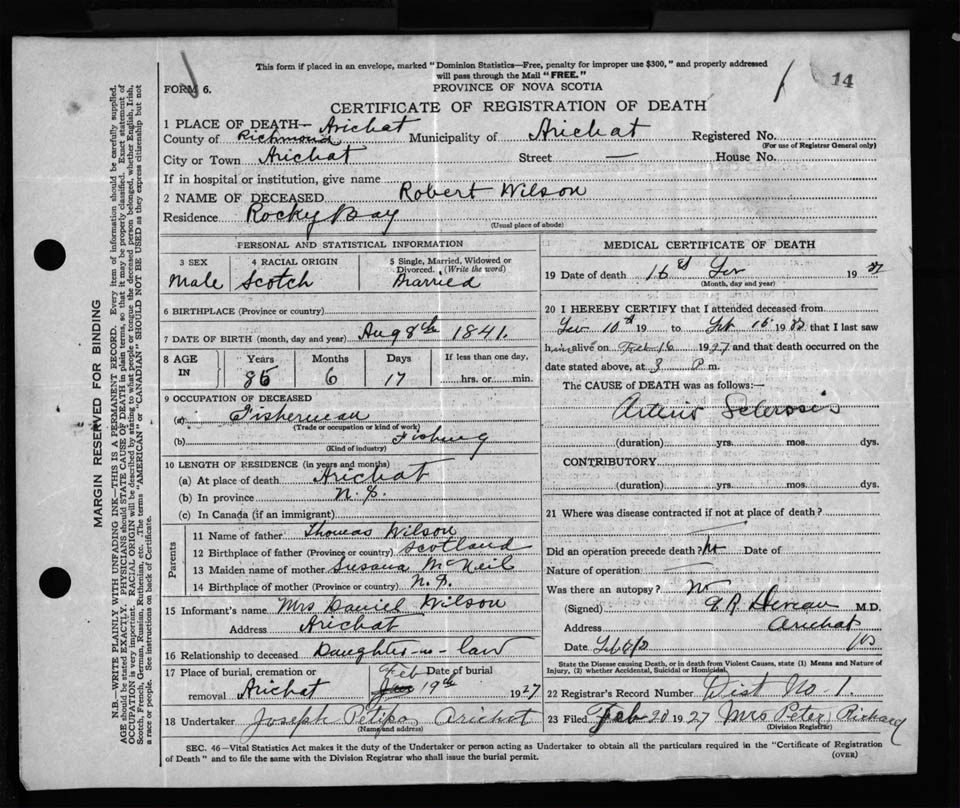 This form if placed in an envelope, marked "Dominion Statistics—Free, penalty for improper use $300," and properly addressed
will pass through the Mail "FREE."
14
FORM 6.
PROVINCE OF NOVA SCOTIA
CERTIFICATE OF REGISTRATION OF DEATH
1 PLACE OF DEATH— Arichat
County of Richmond Municipality of Arichat Registered No.
(For use of Registrar General only)
City or Town Arichat Street — House No.
If in hospital or institution, give name
2 NAME OF DECEASED Robert Wilson
Residence Rocky Bay
(Usual place of abode)
PERSONAL AND STATISTICAL INFORMATION
3 SEX
Male
4 RACIAL ORIGIN
Scotch
5 Single, Married, Widowed or
Divorced. (Write the word)
Married
6 BIRTHPLACE (Province or country)
7 DATE OF BIRTH (month, day and year) Aug 8th 1841.
8 AGE
IN
Years
85
Months
6
Days
17
If less than one day,
hrs. or min.
9 OCCUPATION OF DECEASED
(a) Fisherman
(Trade or occupation or kind of work)
(b) Fishing
(Kind of industry)
10 LENGTH OF RESIDENCE (in years and months)
(a) At place of death Arichat
(b) In province N.S.
(c) In Canada (if an immigrant)
Parents
11 Name of father Thomas Wilson
12 Birthplace of father (Province or country) Scotland
13 Maiden name of mother Susana McNeil
14 Birthplace of mother (Province or country) N.S.
15 Informant's name Mrs Daniel Wilson
Address Arichat
16 Relationship to deceased Daughter-in-law
17 Place of burial, cremation or Date of burial
removal Arichat Feb 19th 1927
18 Undertaker Joseph Petipas Arichat
(Name and address)
MEDICAL CERTIFICATE OF DEATH
19 Date of death 16 Feb 1927
(Month, day and year)
20 I HEREBY CERTIFY that I attended deceased from
Feb 10th 19 to Feb 16 19 that I last saw
him alive on Feb 16 1927 and that death occurred on the
date stated above, at 3 P m.
The CAUSE of DEATH was as follows:—
Arterio Sclerosis
(duration) yrs. mos. dys.
CONTRIBUTORY
(duration) yrs. mos. dys.
21 Where was disease contracted if not at place of death?
Did an operation precede death? No Date of
Nature of operation
Was there an autopsy? No
(Signed) M.D.
Address Arichat
Date Feb
State the Disease causing Death, or in death from Violent Causes, state (1) Means and Nature
of Injury, (2) whether Accidental, Suicidal or Homicidal.
22 Registrar's Record Number Dist No-1.
23 Filed Feb 20 1927 Mrs Peter Richard
(Division Registrar)
SEC. 46—Vital Statistics Act makes it the duty of the Undertaker or person acting as Undertaker to obtain all the particulars required in the "Certificate of Registration
of Death" and to file the same with the Division Registrar who shall issue the burial permit.
(OVER)
MARGIN RESERVED FOR BINDING
N.B.—WRITE PLAINLY WITH UNFADING INK—THIS IS A PERMANENT RECORD. Every item of information should be carefully supplied.
AGE should be stated EXACTLY. PHYSICIANS should STATE CAUSE OF DEATH in plain terms, so that it may be properly classified. Exact statement of
OCCUPATION is very important. RACIAL ORIGIN will be described by stating to what people or tongue the deceased person belonged, whether English, Irish,
Scotch, French, German, Russian, Ruthenian, etc. The terms "AMERICAN" or "CANADIAN" SHOULD NOT BE USED as they express citizenship but not
a race or people. See instructions on back of Certificate.